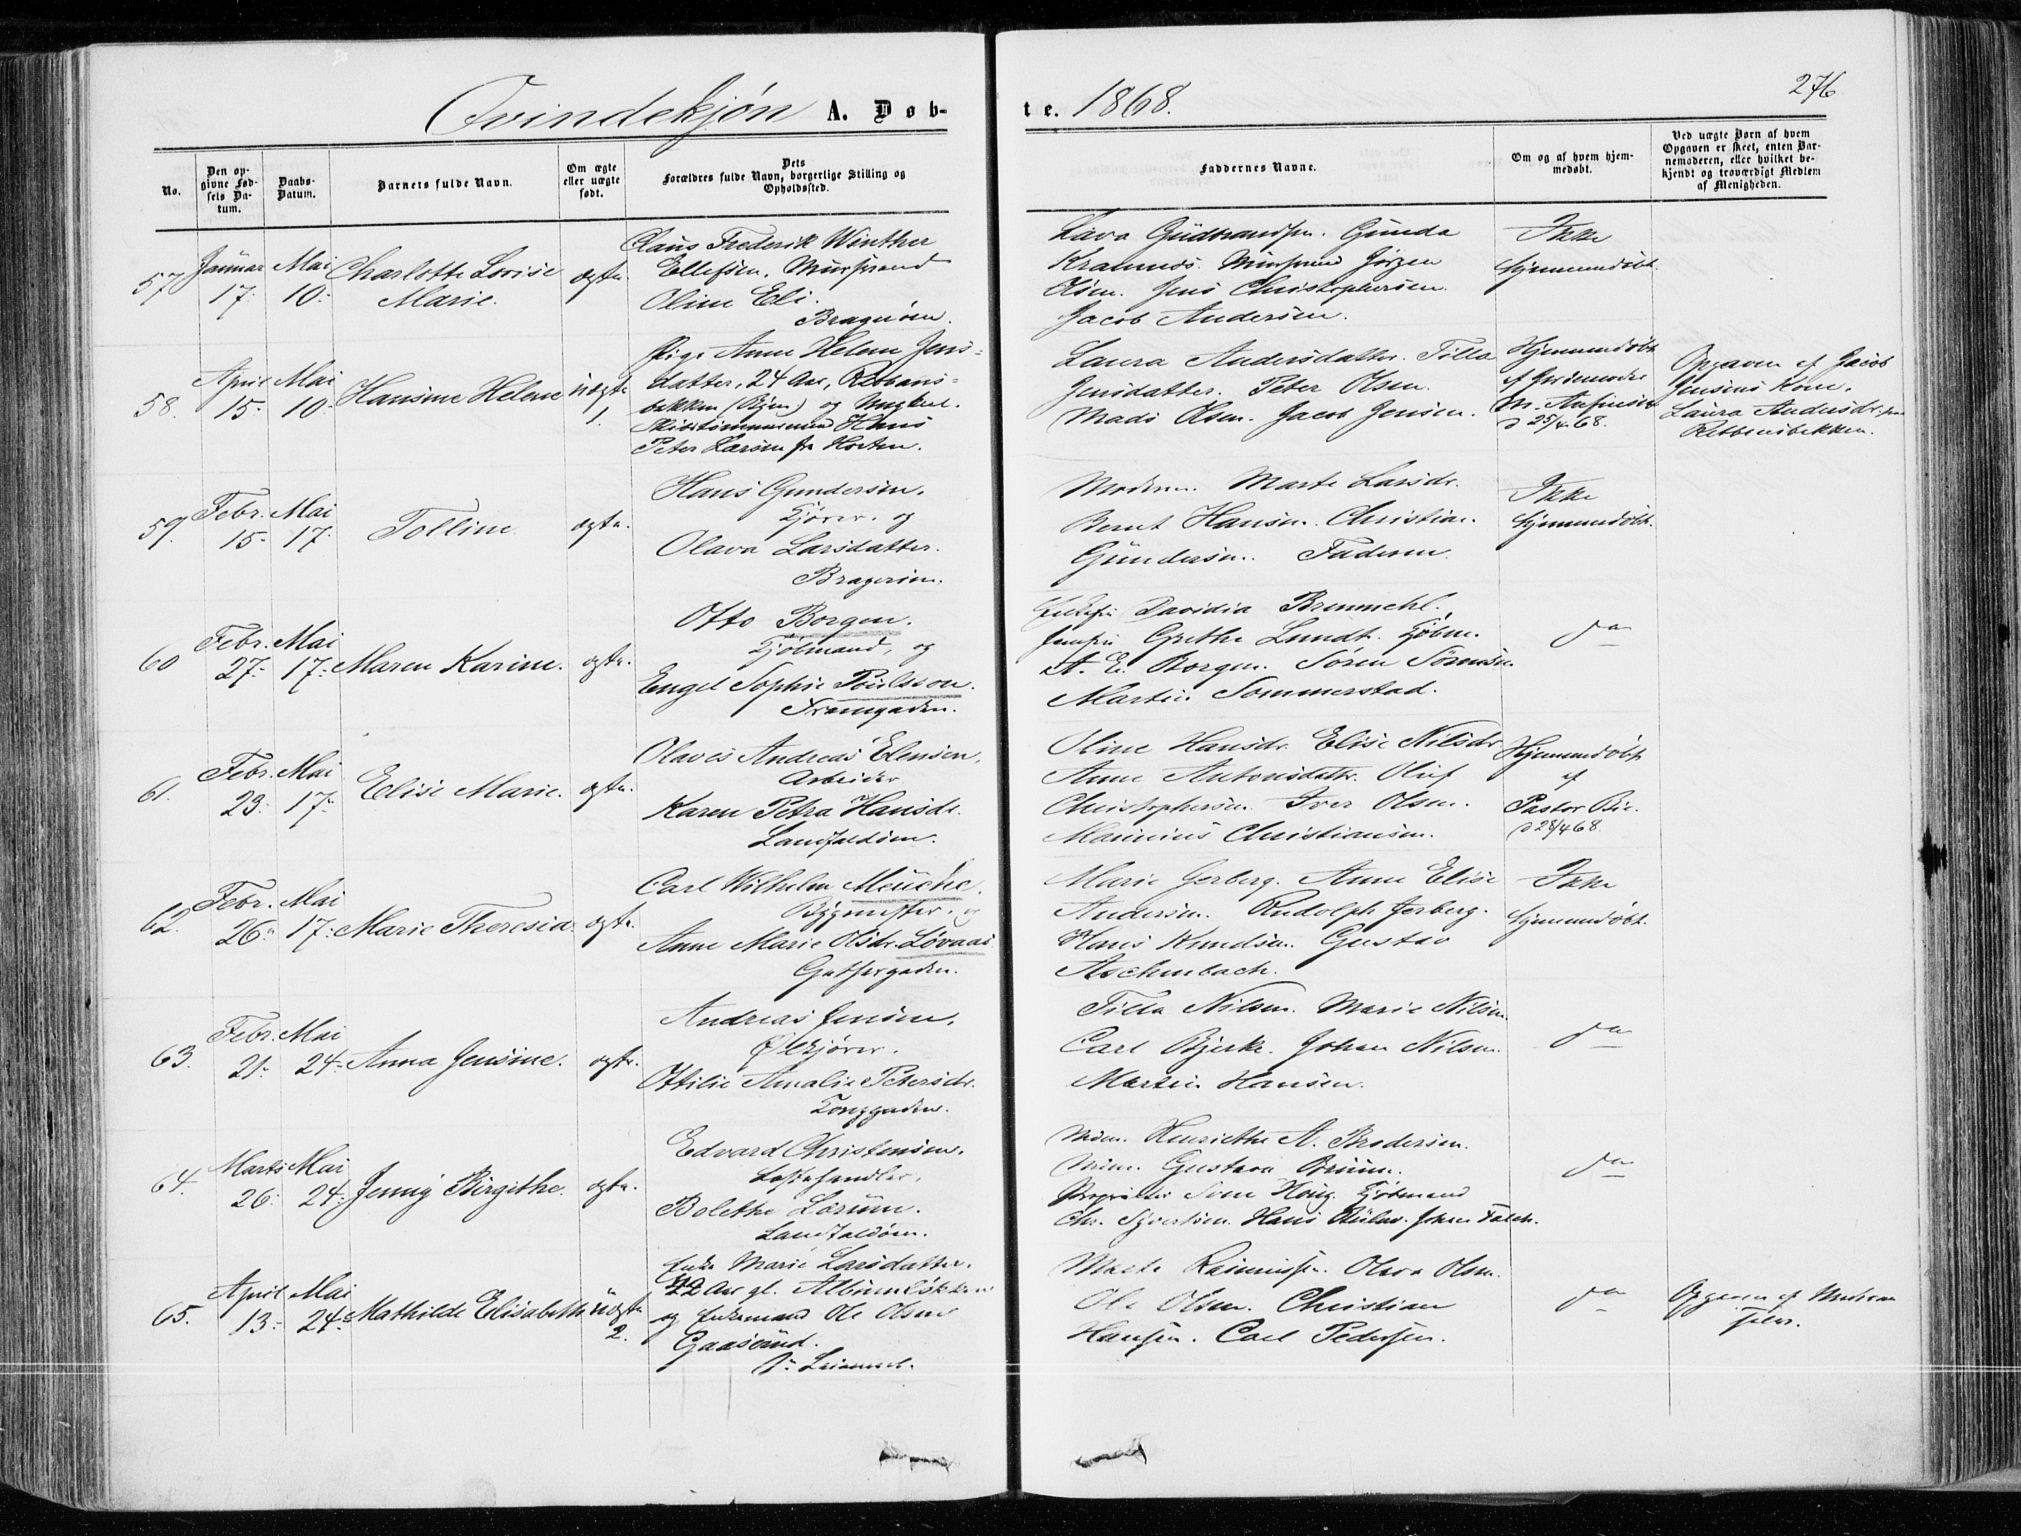 276
Qvindekjøn A. Døb-
te. 1868.
No.
Den op-
givne Fød-
sels Da-
tum.
Daabs-
Datum.
Barnets fulde Navn.
Om ægte
eller uægte
født.
Dets
Forældres fulde Navn, borgerlige Stilling og
Opholdssted.
Faddernes Navne.
Om og af hvem hjem-
medøbt.
Ved uægte Børn af hvem
Opgaven er skeet, enten Bar-
nemoderen, eller hvilket be-
kjendt og troværdigt Medlem
af Menigheden.
57
Januar
17.
Mai
10.
Charlotte Lovise
Marie.
ægte.
Claus Frederik Winther
Ellefsen, Murszvend
Oline Eli.
Bragernæs.
Lava Gudbrandsen. Gunda
Jørgen
Olsen. Jens Christophersen.
Jacob Andersen.
Ikke
hjemmedøbt.
58.
April
15.
Mai
10.
Hansine Helene
uægte
1.
Pige Anne Helene Jens-
datter, 24 Aar,
bakken og Ungkarl.
Skibstømmermand Hans
Peter Larsen fra Horten.
Laura Andersdatter. Tilla
Jensdatter. Peter Olsen.
Mads Olsen. Jacob Jensen.
Hjemmedøbt
af Gordemoder
25/4 68.
Opgaven af Jacob
Jensens Kone,
Laura Andersdr.
59.
Febr.
15.
Mai
17.
Tolline
ægte.
Hans Gundersen.
Kjører. og
Olava Larsdatter.
Bragernæs.
Moderen. Marte Larsdr.
Bernt Hansen. Christian
Gundersen. Faderen.
Ikke
hjemmedøbt.
60
Febr.
27.
Mai
17.
Maren Karine.
ægte.
Otto Borgen.
Kjøbmand, og
Engel Sophie Poulsson.
Tramgaden.
Davidia
Grethe Lundt. Kjøbm.
A. E. Borgen. Søren Sørensen.
Martin Sommerstad.
do
61.
Febr.
23.
Mai
17.
Elise Marie.
ægte.
Olaves Andreas Elensen.
Arbeider
Karen Petra Hansdr.
Landfaldøen.
Oline Hansdr. Elise Nilsdr.
Anne Antonsdatr. Oluf
Christophersen. Iver Olsen.
Christiansen.
Hjemmedøbt
af
Pastor
d 28/4 68.
62.
Febr.
26.
Mai
17.
Marie Theresia.
ægte.
Carl Wilhelm Meuche.
Bygmester, og
Anne Marie Olsdr. Løvaas
Gutsesgaden.
Marie Jerberg. Anne Elise
Andersen. Rudolph Jerberg.
Hans Knudsen. Gustav
Aschenbach.
Ikke
hjemmedøbt.
63.
Febr.
21.
Mai
24.
Anna Jensine.
ægte.
Andreas Jensen.
Ølkjører.
Ottilie Amalie Petersdr.
Konggaden.
Tilla Nilsen. Marie Nilsen.
Carl Bjerke. Johan Nilsen.
Martin Hansen.
do
64.
Marts
26.
Mai
24.
Jenny Birgithe.
ægte.
Edvard Christensen.
Lasthandler.
Bolethe Lorum.
Landfaldøen.
Mdm. Henriethe A. Brodersen.
Gustava
Proprietær Kjøbmand
Chr. Syvertsen. Hans Johan Falch.
do
65.
April
13.
Mai
24.
Mathilde Elisabeth
uægte
2.
Enke Marie Larsdatter.
42 Aar gl. Albumsløkken
og Enkemand Ole Olsen
Gaasrud.
Marte Rasmussen. Olava Olsen.
Ole Olsen. Christian
Hansen. Carl Pedersen.
do
Opgaven af Moderen
selv.